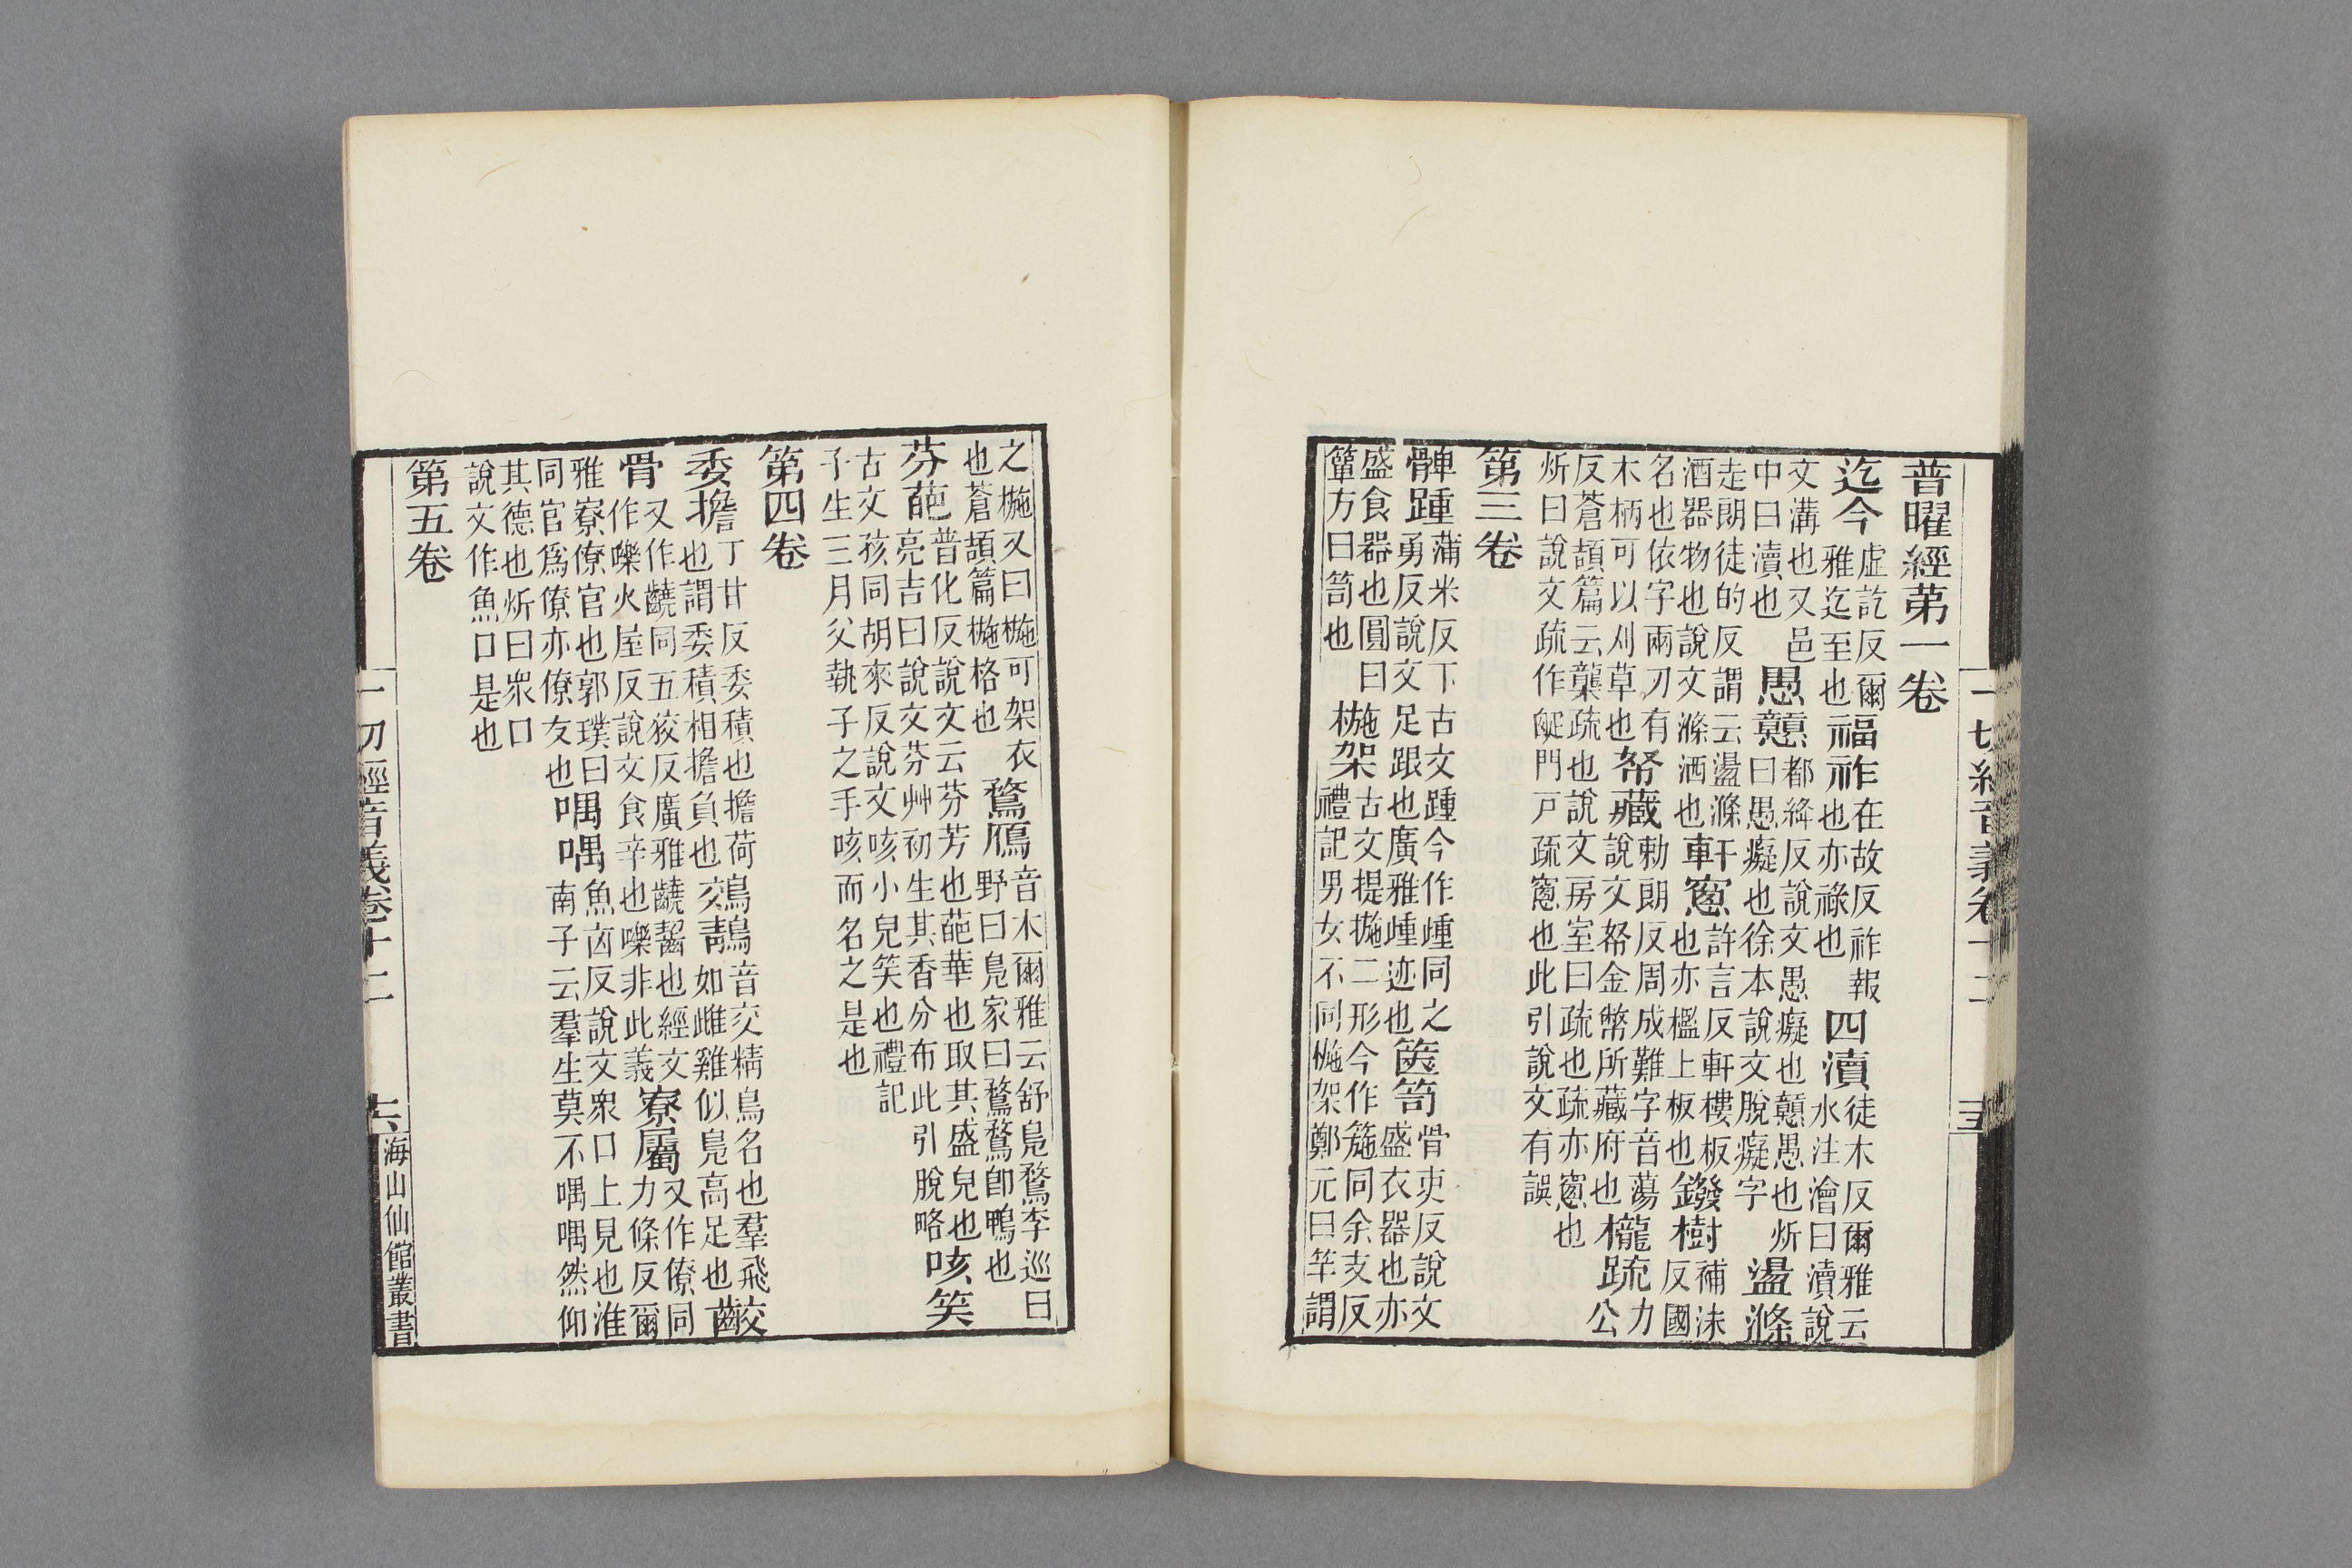 普曜經第一卷
迄今虛訖反爾雅迄至也福祚在故反祚報也亦祿也四瀆徒木反爾雅云水注澮曰瀆說
文溝也又邑中曰瀆也愚戇都絳反說文愚癡也戇愚也炘曰愚癡也徐本說文脫癡字盪滌
走朗徒的反謂云盪滌酒器物也說文滌洒也軒窻許言反軒樓板也亦檻上板也鏺樹補沬反國
名也依字兩刃有木柄可以刈草也帑藏勅朗反周成難字音蕩說文帑金幣所藏府也櫳疏力公
反蒼頡篇云龒疏也說文房室曰疏也疏亦窻也炘曰說文疏作𤕟門戸疏窻也此引說文有誤
第三卷
髀踵蒲米反下古文踵今作踵同之勇反說文足跟也廣雅踵迹也篋笥骨吏反說文盛衣器也亦
盛食器也圓曰簞方曰笥也椸架古文提㩼二形今作箷同余支反禮記男女不同椸架鄭元曰竿謂
之椸又曰椸可架衣也蒼頡篇椸格也鶩鴈音木爾雅云舒鳧鶩李巡曰野曰鳧家曰鶩鶩卽鴨也
芬葩普化反說文云芬芳也葩華也取其盛皃也亮吉曰說文芬艸初生其香分布此引脫略咳笑
古文孩同胡來反說文咳小兒笑也禮記子生三月父執子之手咳而名之是也
第四卷
委擔丁甘反委積也擔荷也謂委積相擔負也鵁鶄音交精鳥名也羣飛如雌雞似鳧高足也齩
骨又作齩同五狡反廣雅齩齧也經文作嚛火屋反說文食辛也嚛非此義寮屬又作僚同力條反爾
雅寮僚官也郭璞曰同官爲僚亦僚友也喁喁魚㐫反說文衆口上見也淮南子云羣生莫不喁喁然仰
其德也炘曰衆口說文作魚口是也
第五卷
一切經音義卷十二
十五
一切經音義卷十二
十六
海山仙館叢書